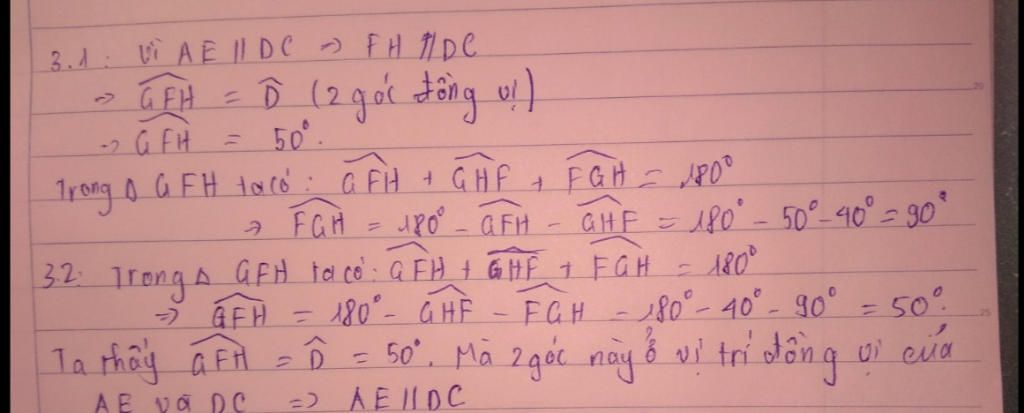 3.1: Vì AE // DC → FH // DC
→ \widehat{GFH} = \widehat{D} (2 góc đồng vị)
→ \widehat{GFH} = 50°.
Trong Δ GFH ta có: \widehat{GFH} + \widehat{GHF} + \widehat{FGH} = 180°
→ \widehat{FGH} = 180° - \widehat{GFH} - \widehat{GHF} = 180° - 50° - 40° = 90°
3.2: Trong Δ GFH ta có: \widehat{GFH} + \widehat{GHF} + \widehat{FGH} = 180°
⇒ \widehat{GFH} = 180° - \widehat{GHF} - \widehat{FGH} - 180° - 40° - 90° = 50°.
Ta thấy \widehat{GFH} = \widehat{D} = 50°. Mà 2 góc này ở vị trí đồng vị của
AE và DC ⇒ AE // DC
20
25